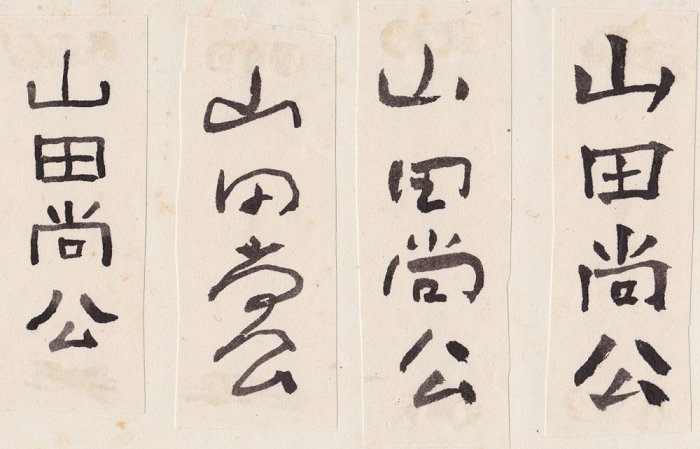 山田尚公
山田尚公
山田尚公
山田尚公